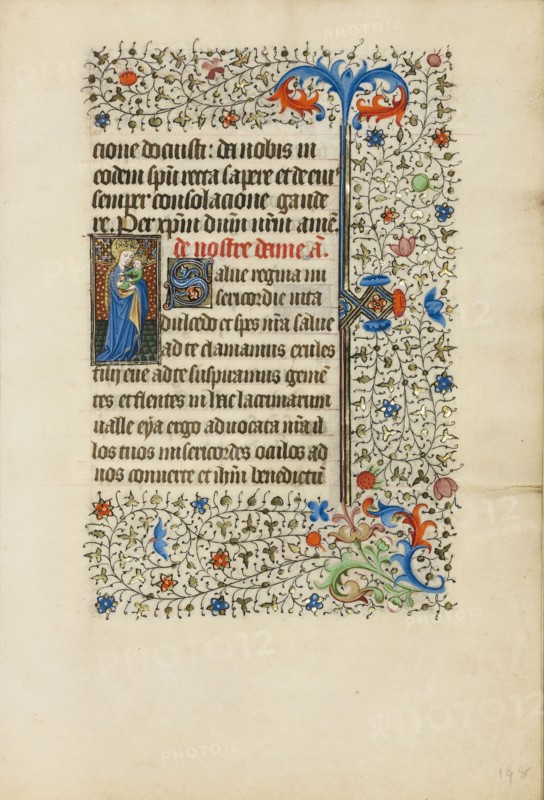 cione docuisti: da nobis in
eodem spũ recta sapere et de eiꝰ
semper consolacione gaude
re. Per xpm̃ dnm̃ nrm̃ amẽ.
de nostre dame a.
Salue regina mi
sericordie uita
dulcedo et spes nr̃a salue
ad te clamamus exules
filij eue ad te suspiramus gemẽ
tes et flentes in hac lacrimarum
ualle eya ergo aduocata nr̃a il
los tuos misericordes oculos ad
nos conuerte et ihm̃ benedictũ
198
PHOTO12